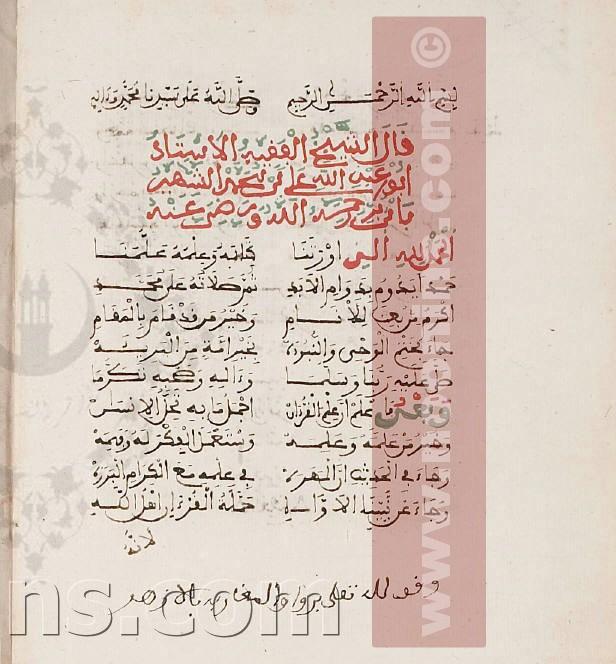 بسم الله الرحمن الرحيم وصلى الله على سيدنا محمد وءاله
قال الشيخ الفقيه الاستاذ
ابو عبد الله علي بن محمد الشهير
بابن بري رحمه الله ورضي عنه
الحمد لله الذي اورثنا كتابه وعلمه علمنا
حمدا يدوم بدوام الابد ثم صلاته على محمد
اكرم من بعث للانام وخير من قد قام بالمقام
جاء بختم الوحي والنبوة لخير امة من البرية
صلى عليه ربنا وسلما وءاله وصحبه تكرما
وبعد فاعلم ان علم القرءان اجمل ما به تحلى الانسان
وخير ما علمه وعلمه واستعمل الفكر له وفهمه
وجاء في الحديث ان المهرة في علمه مع الكرام البررة
وجاء عن نبينا الاواه حملة القرءان اهل الله
لانه
وقف لله تعلى برواق المغاربة بالازهر
ns.com